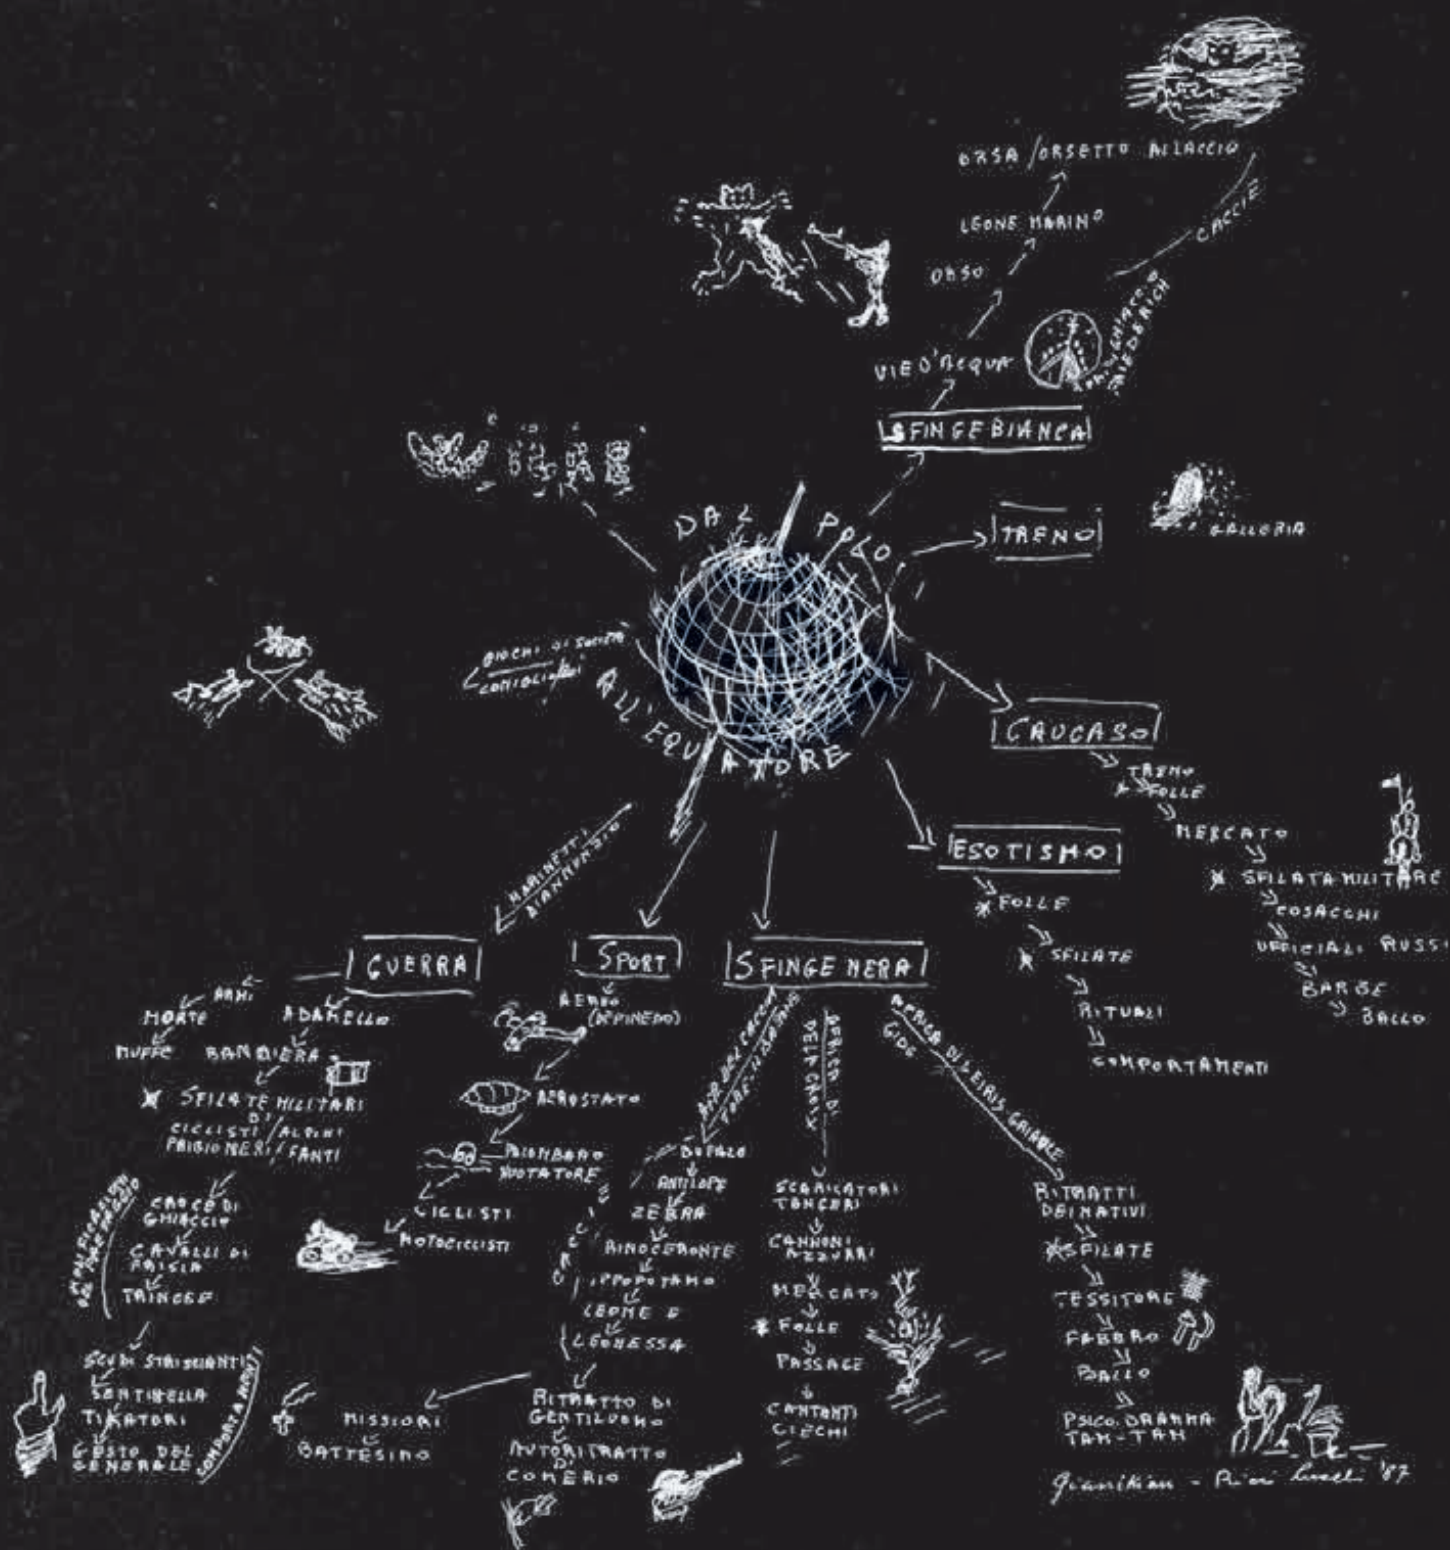 ORSA / ORSETTO AL LACCIO
CACCIE
LEONE MARINO
ORSO
VIE D'ACQUA
FRIEDERICH
SFINGE BIANCA
DAL POLO
TRENO
GALLERIA
GIOCHI DI SOCIETÀ
ALL'EQUATORE
CAUCASO
TRENO
* FOLLE
MERCATO
* SFILATA MILITARE
COSACCHI
UFFICIALI RUSSI
BARBE
BALLO
ESOTISMO
* FOLLE
* SFILATE
RITUALI
COMPORTAMENTI
MARINETTI
D'ANNUNZIO
GUERRA
ARMI
MORTE
MUFFE
ADAMELLO
BANDIERA
* SFILATE MILITARI
DI
CICLISTI / ALPINI
PRIGIONIERI / FANTI
CROCE DI
GHIACCIO
CAVALLI DI
FRISIA
TRINCEE
SCUDI STRISCIANTI
SENTINELLA
TIRATORI
GESTO DEL
GENERALE
SPORT
AEREO
(DE PINEDO)
AEROSTATO
PALOMBARO
NUOTATORE
CICLISTI
MOTOCICLISTI
SFINGE NERA
AFRICA DI
AFRICA DI LEIRIS GRIAULE
GIDE
BUFALO
ANTILOPE
ZEBRA
RINOCERONTE
IPPOPOTAMO
LEONE E
LEONESSA
RITRATTO DI
GENTILUOMO
AUTORITRATTO
DI
COMERIO
MISSIONI
BATTESIMO
SCARICATORI
TANGERI
CANNONI
AZZURRI
MERCATO
* FOLLE
PASSAGE
CANTANTI
CIECHI
RITRATTI
DEI NATIVI
* SFILATE
TESSITORE
FABBRO
BALLO
PSICO. DRAMMA
TAM-TAM
Gianikian - Ricci Lucchi '87